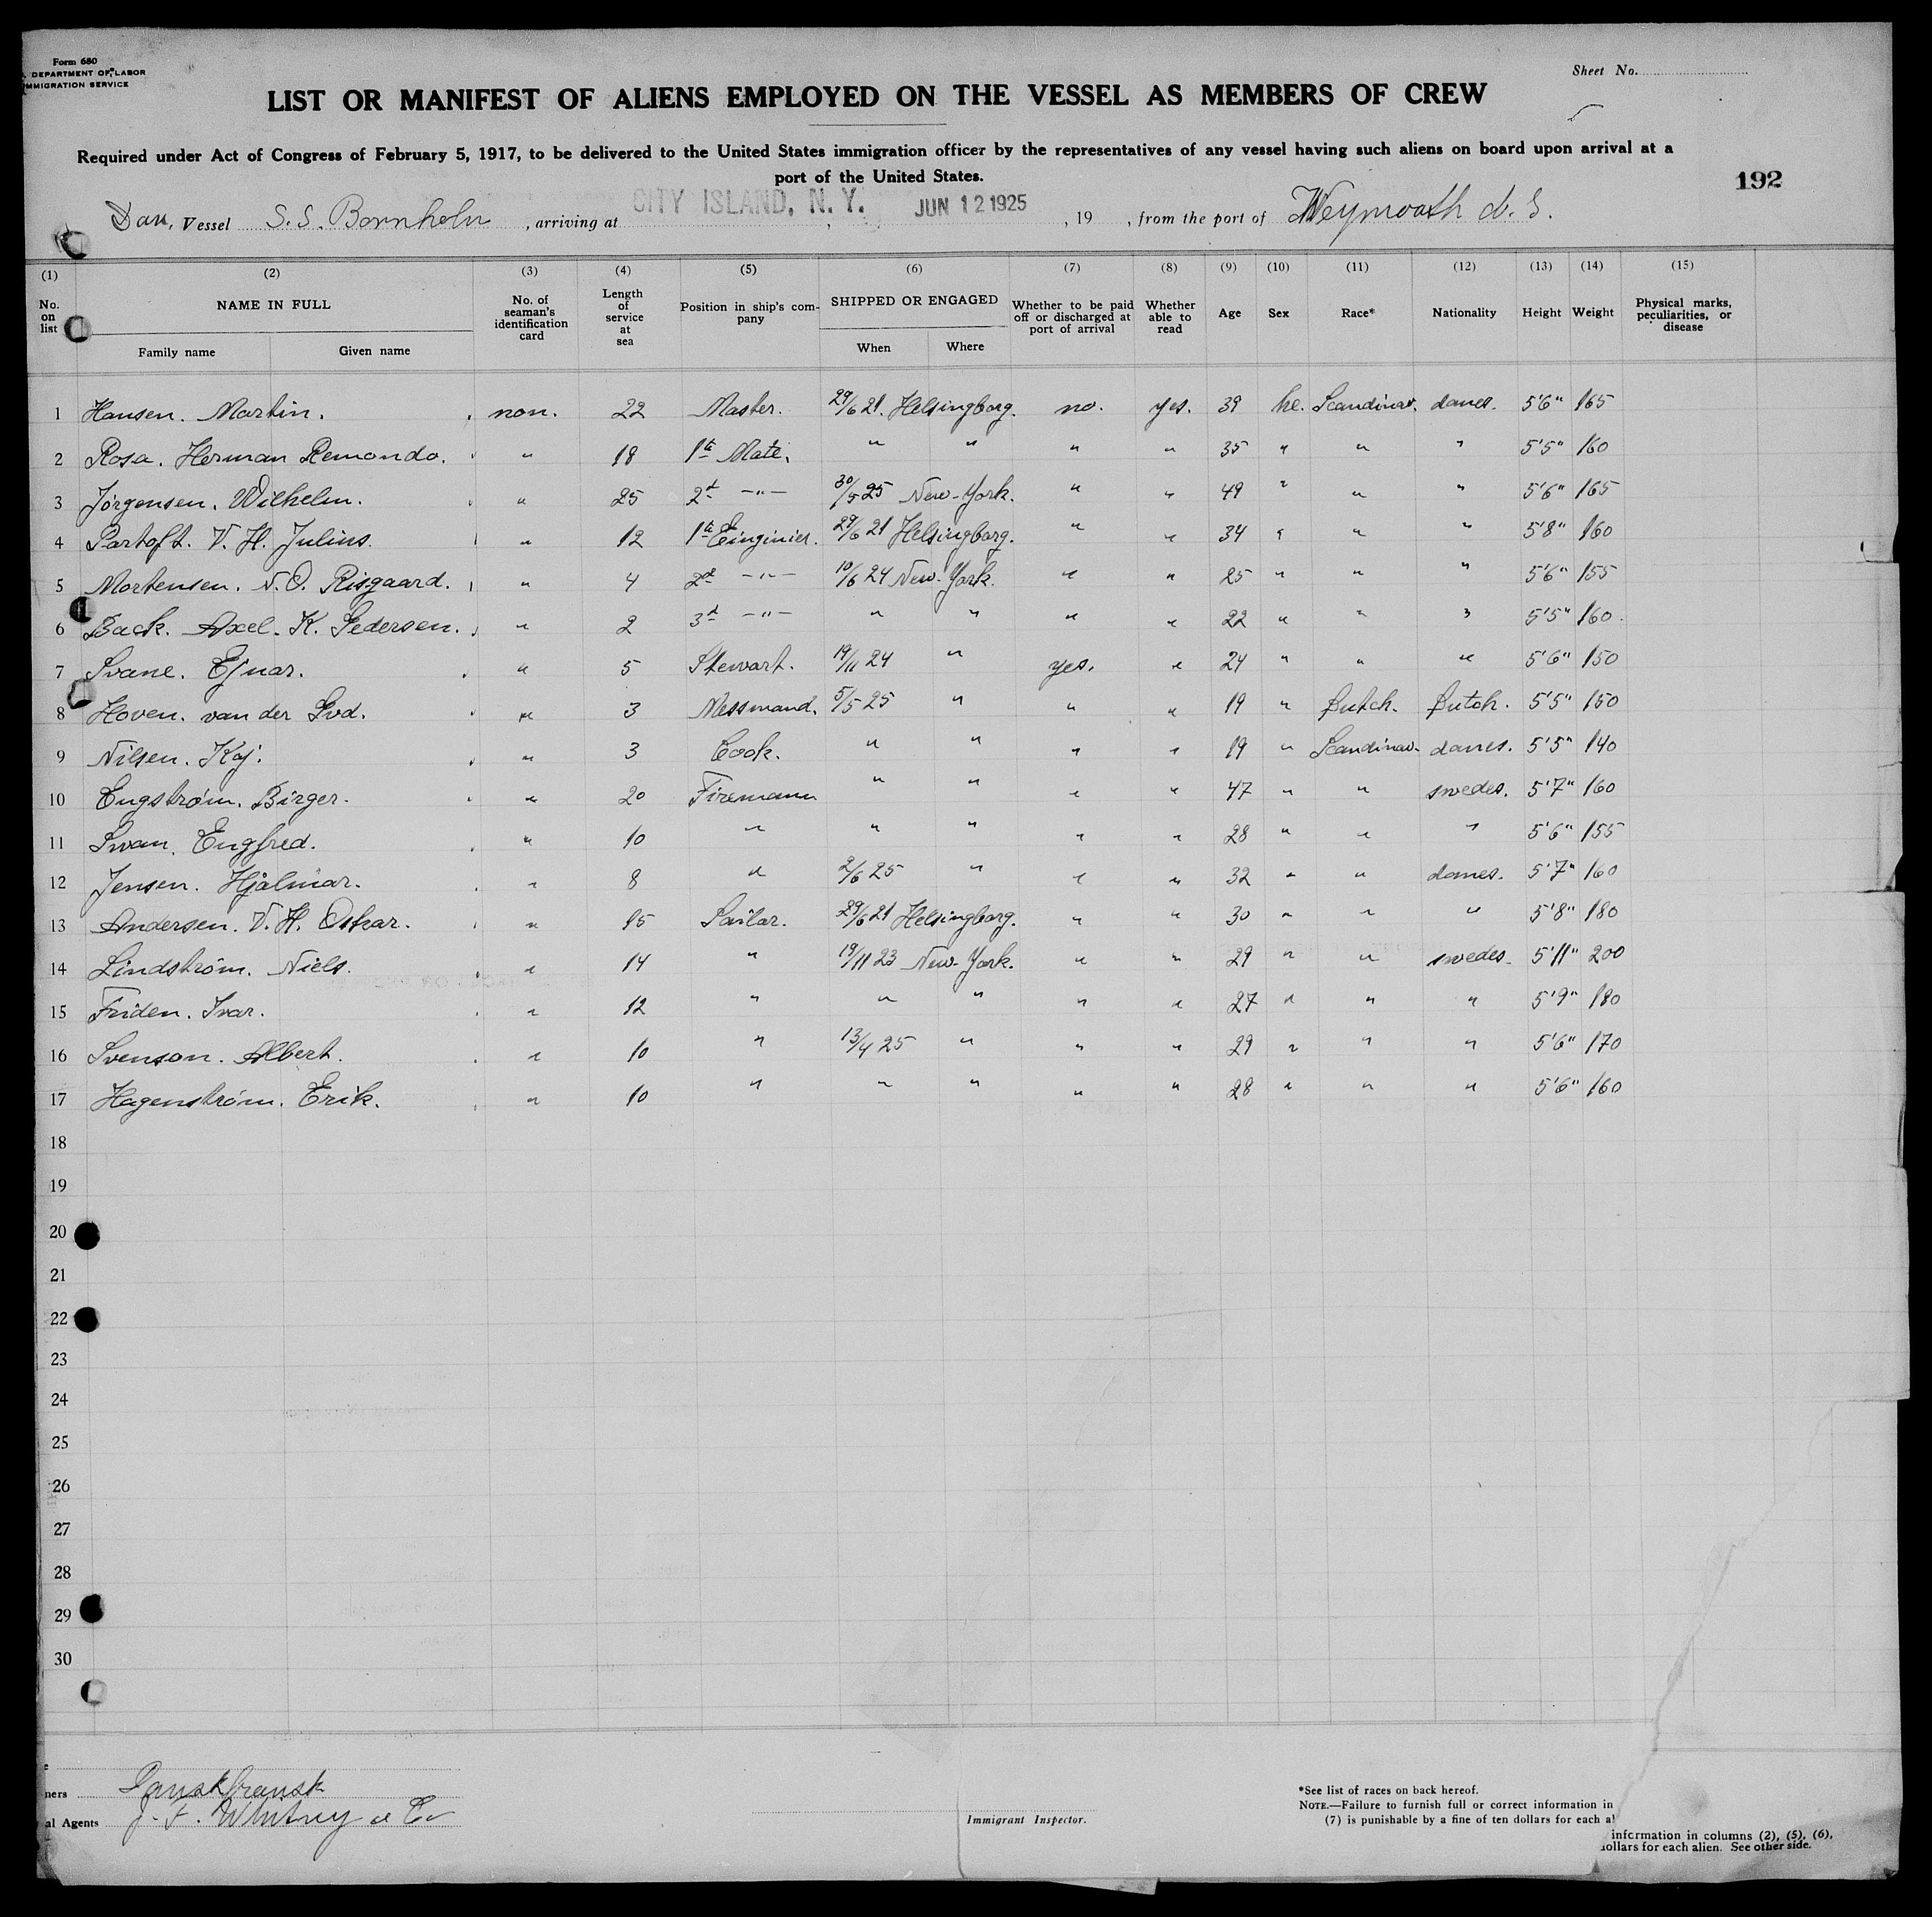 Form 680
DEPARTMENT OF LABOR
IMMIGRATION SERVICE
Sheet No.
LIST OR MANIFEST OF ALIENS EMPLOYED ON THE VESSEL AS MEMBERS OF CREW
Required under Act of Congress of February 5, 1917, to be delivered to the United States immigration officer by the representatives of any vessel having such aliens on board upon arrival at a
port of the United States.
192
Dan, Vessel S.S. Bornholm, arriving at CITY ISLAND, N. Y. JUN 12 1925, 19 , from the port of Weymouth N. S.
(1) (2) (3) (4) (5) (6) (7) (8) (9) (10) (11) (12) (13) (14) (15)
No. on list NAME IN FULL Family name Given name No. of seaman's identification card Length of service at sea Position in ship's company SHIPPED OR ENGAGED When Where Whether to be paid off or discharged at port of arrival Whether able to read Age Sex Race* Nationality Height Weight Physical marks, peculiarities, or disease
1 Hansen. Martin. non. 22 Master. 29/6 21. Helsingborg. no. yes. 39 he. Scandinav. danes. 5'6" 165
2 Rosa. Herman Remondo. " 18 1te Mate. " " " " 35 " " " 5'5" 160
3 Jørgensen. Wilhelm. " 25 2d —"— 30/5 25 New-York. " " 49 " " " 5'6" 165
4 Partoft. V. H. Julius. " 12 1te Einginier. 29/6 21 Helsingborg. " " 34 " " " 5'8" 160
5 Mortensen. N.O. Risgaard. " 4 2d —"— 10/6 24 New-York. " " 25 " " " 5'6" 155
6 Back. Axel. K. Pedersen. " 2 3d —"— " " " " 22 " " " 5'5" 160.
7 Svane. Ejnar. " 5 Stewart. 19/11 24 " yes. " 24 " " " 5'6" 150
8 Hoven. van der Gvd. " 3 Messmand. 5/5 25 " " " 19 " Dutch. Dutch. 5'5" 150
9 Nilsen. Kaj. " 3 Cook. " " " " 19 " Scandinav. danes. 5'5" 140
10 Engstrøm. Birger. " 20 Firemann " " " " 47 " " swedes. 5'7" 160
11 Swan. Engfred. " 10 " " " " " 28 " " " 5'6" 155
12 Jensen. Hjalmar. " 8 " 2/6 25 " " " 32 " " danes. 5'7" 160
13 Andersen. V. H. Oskar. " 15 Sailar. 29/6 21 Helsingborg. " " 30 " " " 5'8" 180
14 Lindstrøm. Niels. " 14 " 19/11 23 New-York. " " 29 " " swedes. 5'11" 200
15 Friden. Ivar. " 12 " " " " " 27 " " " 5'9" 180
16 Svenson. Albert. " 10 " 13/4 25 " " " 29 " " " 5'6" 170
17 Hagenstrøm. Erik. " 10 " " " " " 28 " " " 5'6" 160
18
19
20
21
22
23
24
25
26
27
28
29
30
ners Dansk fransk
al Agents J. F. Whitney & Co
Immigrant Inspector.
*See list of races on back hereof.
NOTE.—Failure to furnish full or correct information in
(7) is punishable by a fine of ten dollars for each al
information in columns (2), (5), (6),
dollars for each alien. See other side.